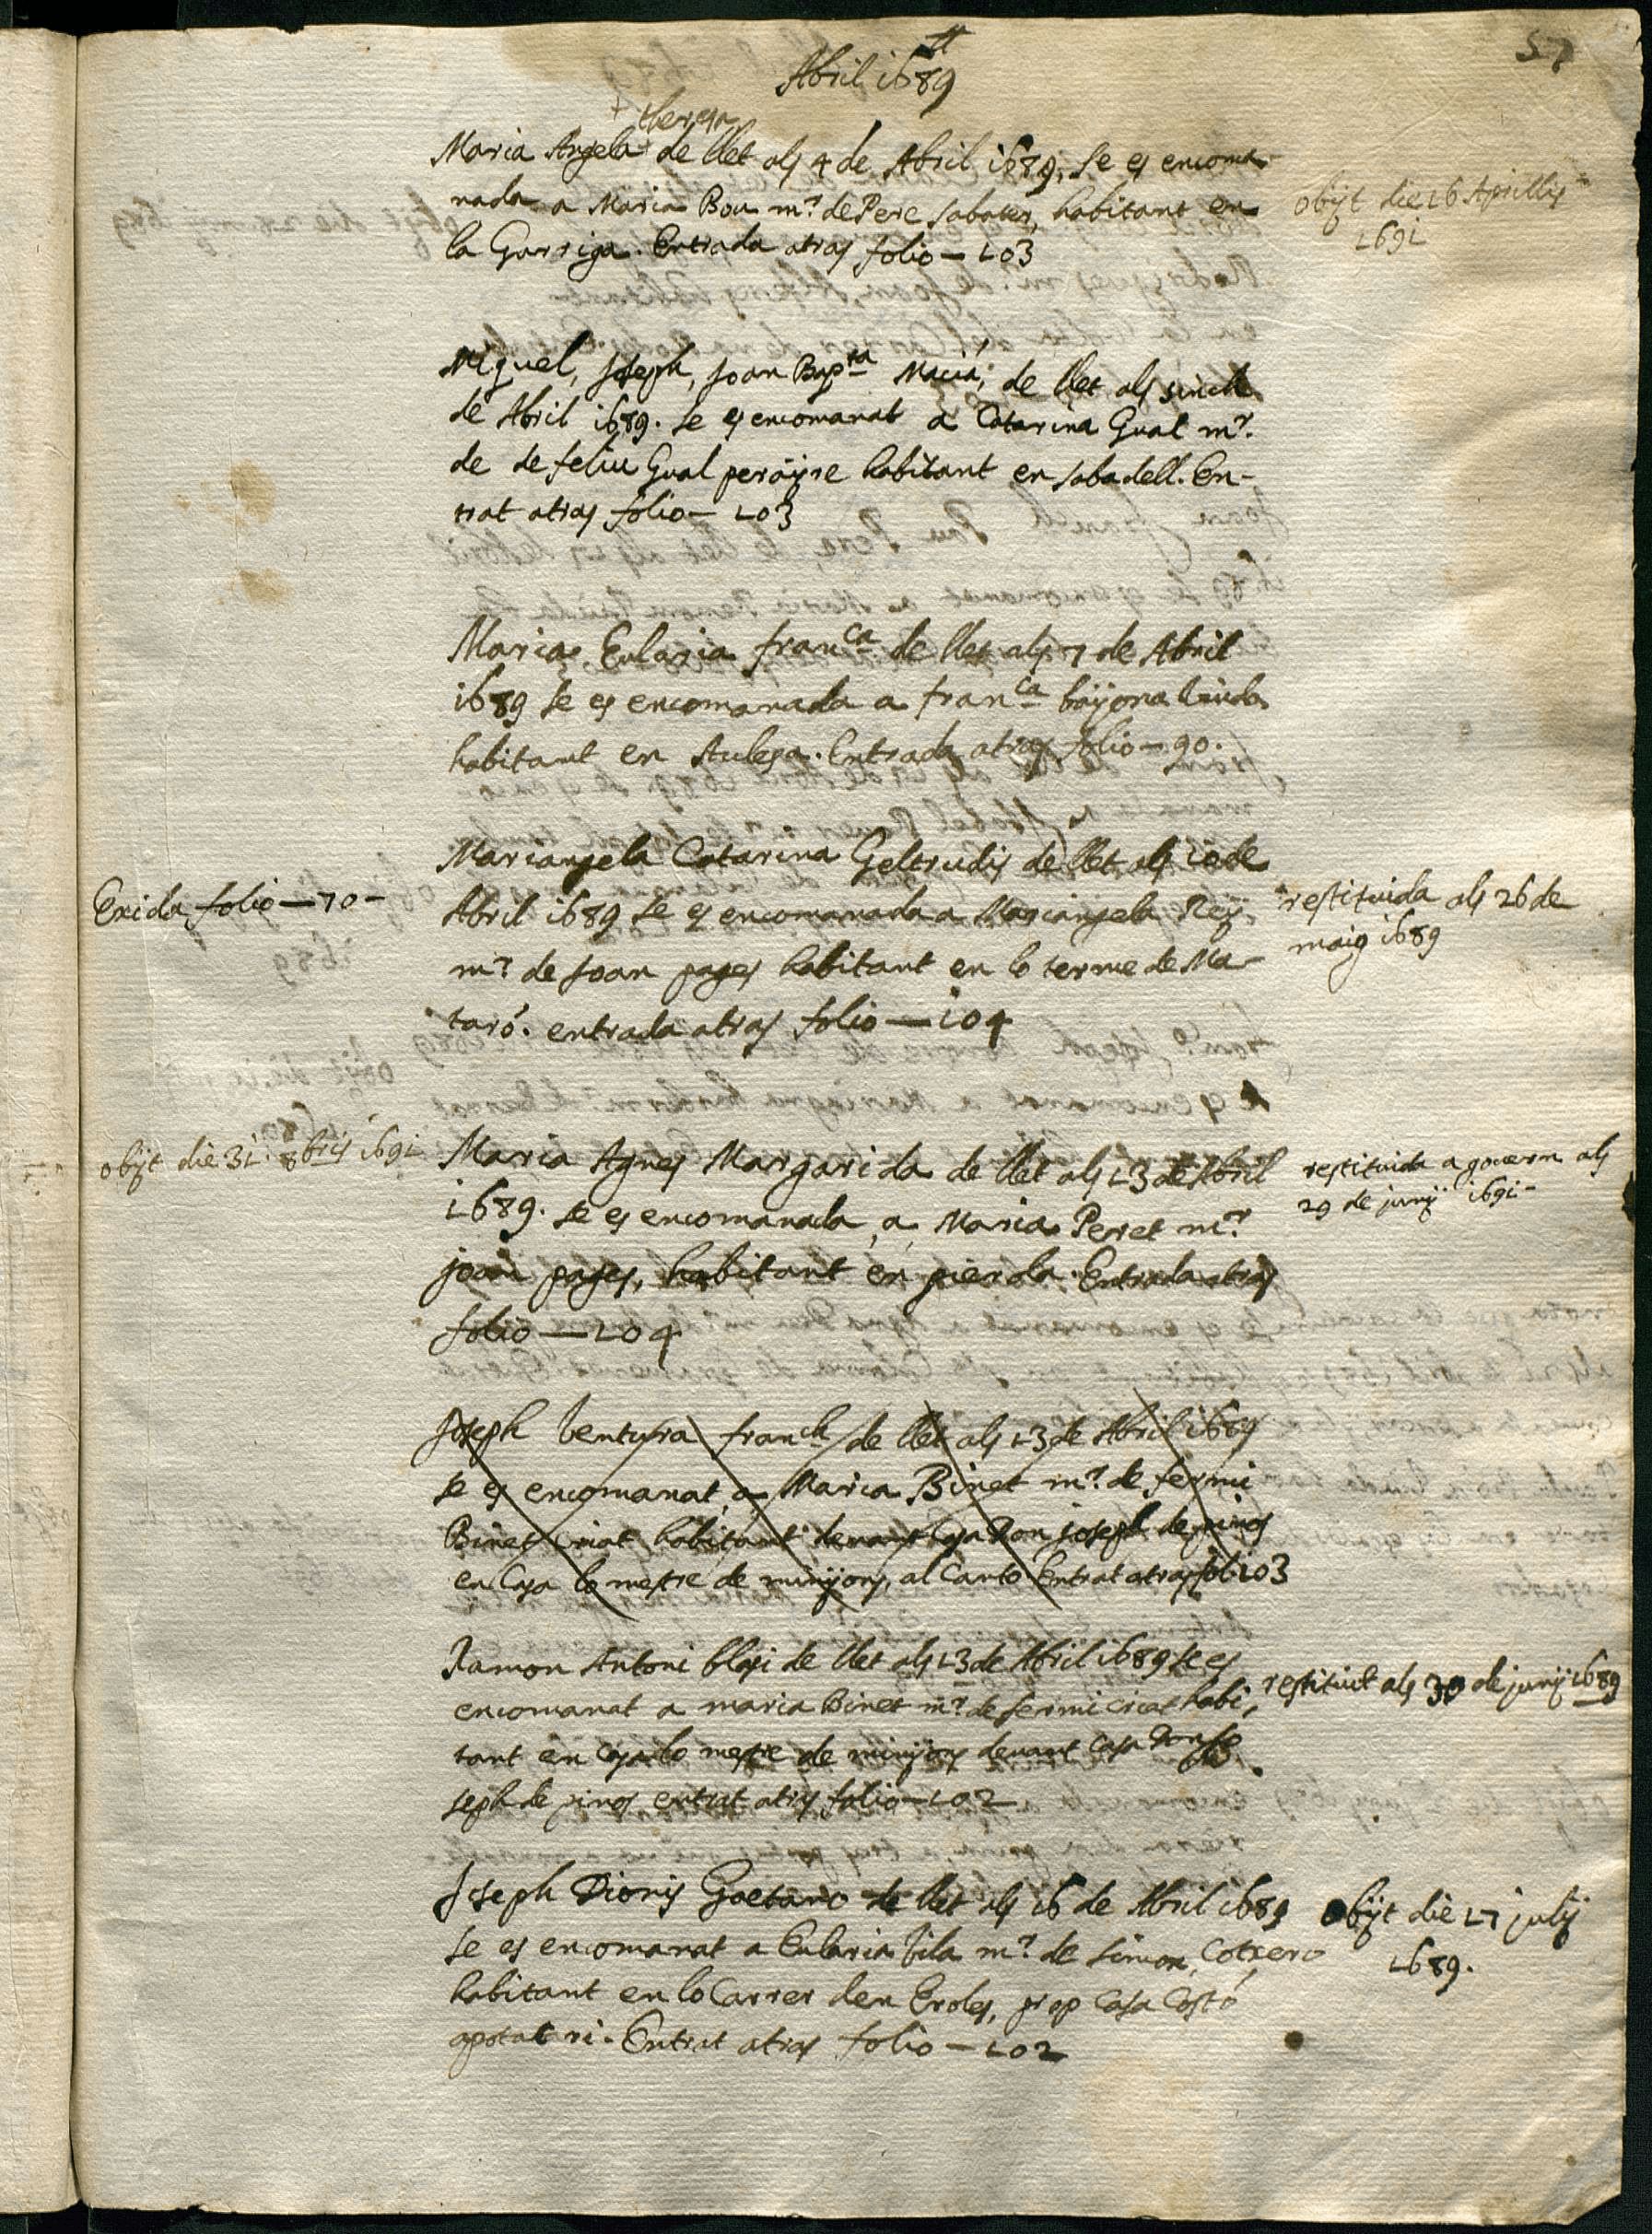 57
Abril 1689
+ theresa
Maria Angela de llet als 4 de Abril 1689, se es encoma-
nada a Maria Bou mr. de Pere sabater, habitant en
la Garriga. Entrada atras folio — 103
obijt die 16 Aprillis
1691
Miquel, Joseph, Joan Bapta Macià, de llet als sinch
de Abril 1689. se es encomanat a Catarina Gual mr.
de de feliu Gual perayre habitant en sabadell. En-
trat atras folio — 103
Maria Eularia franca de llet als 7 de Abril
1689 se es encomanada a franca viuda
habitant en Aulesa. Entrada atras folio — 90.
Mariangela Catarina Geltrudis de llet als 10 de
Exida folio — 70 —
Abril 1689 se es encomanada a Mariangela Reÿ
mr. de Joan pages habitant en lo terme de Ma-
taró. entrada atras folio — 104
restituida als 26 de
maig 1689
obijt die 31. 8bris 1691
Maria Agnes Margarida de llet als 13 de Abril
1689. se es encomanada a Maria Peret mr.
joan pages, habitant en pierola. Entrada atras
folio — 104
restituida a govern als
29 de junÿ 1691 —
Joseph Ventura franch de llet als 13 de Abril 1689
se es encomanat a Maria Binet mr. de fermi
Binet criat habitant devant casa Don joseph de pinos
en Casa lo mestre de minÿons, al Canto Entrat atras fol. 103
Ramon Antoni blasi de llet als 13 de Abril 1689 se es
encomanat a maria Binet mr. de fermi criat habi-
tant en casa lo mestre de minÿons devant casa Don Jo
seph de pinos entrat atras folio — 102
restituit als 30 de junÿ 1689
Joseph Dionis Gaetano de llet als 16 de Abril 1689
se es encomanat a Eularia Vila mr. de simon, Cotxero
habitant en lo Carrer den Eroles, prop Casa Costó
apotacari. Entrat atras folio — 102
Obijt die 17 julÿ
1689.